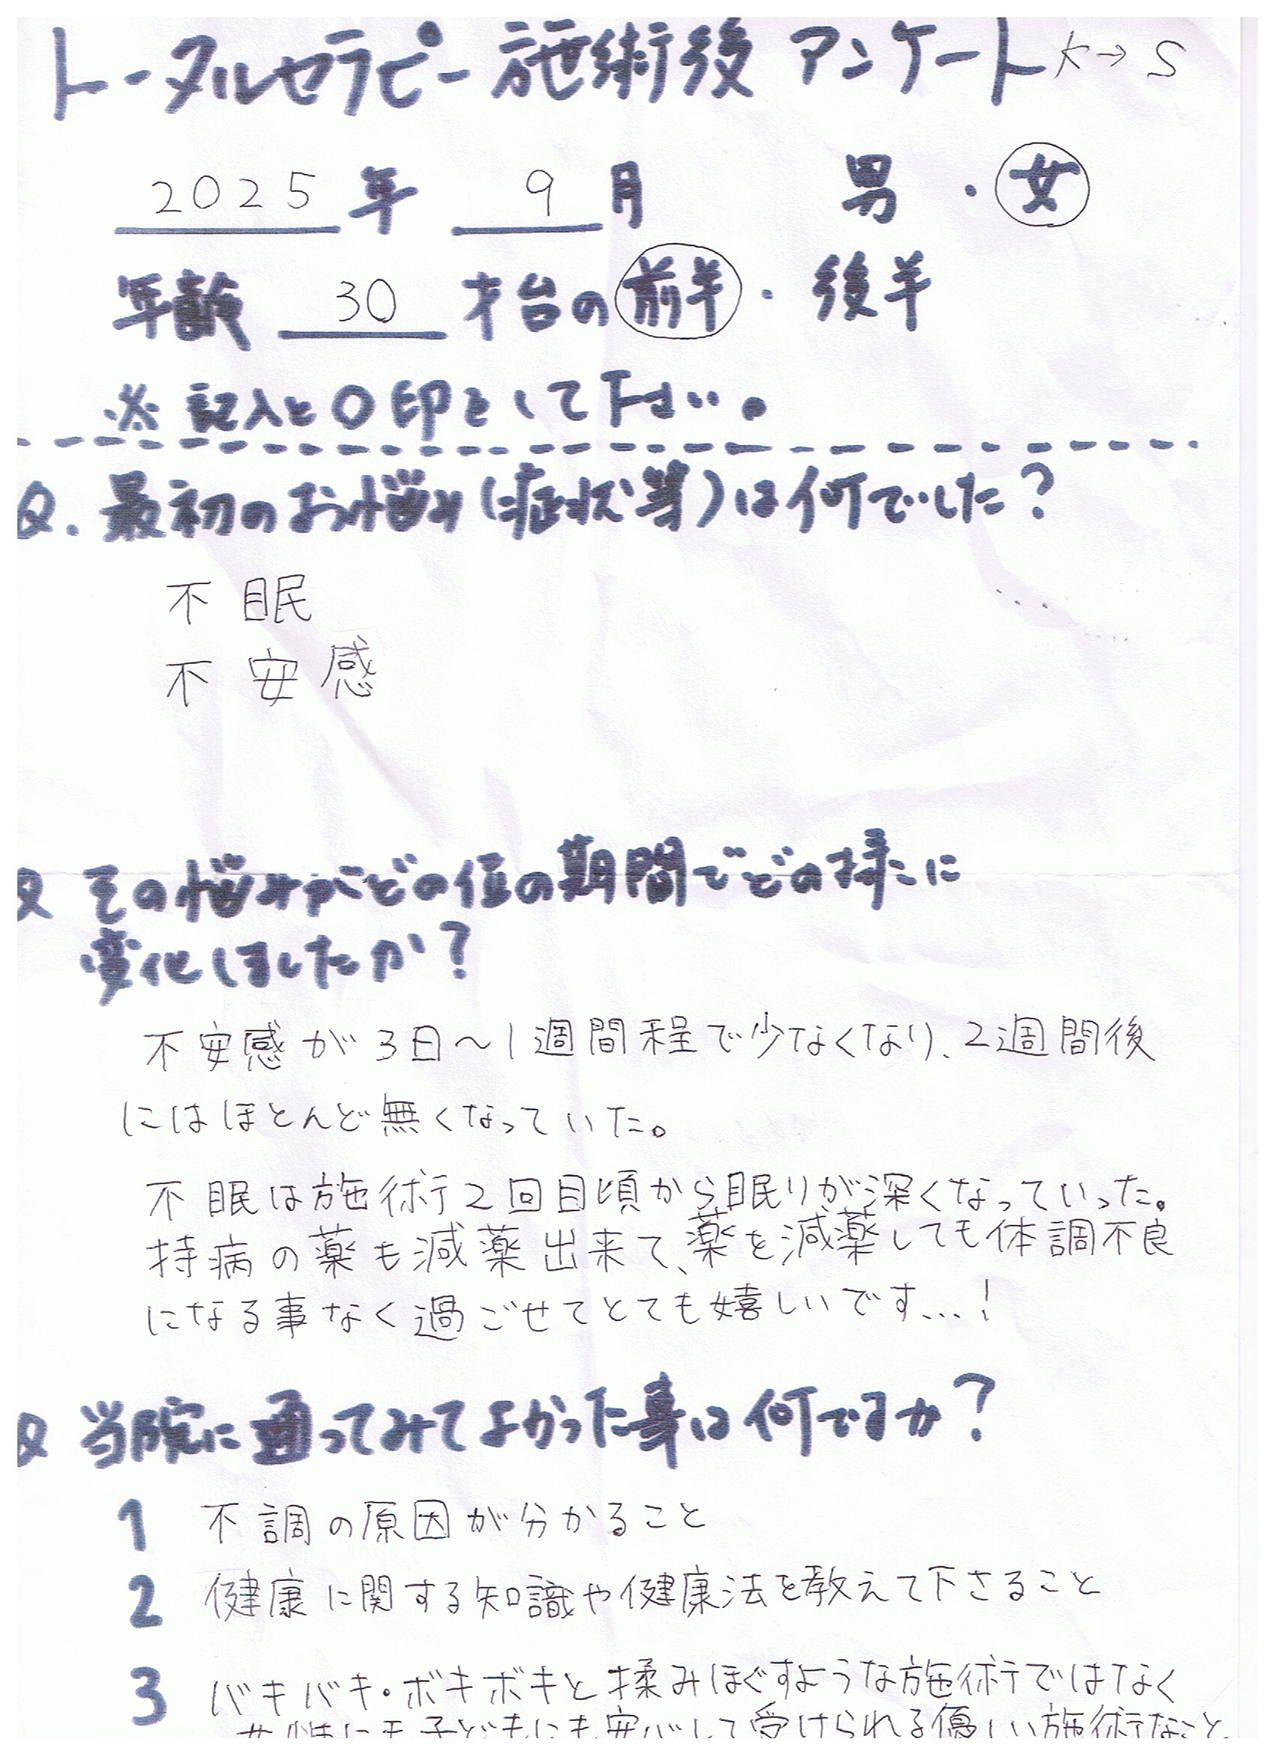 トータルセラピー施術後 アンケート K→S
2025年 9月 男・女
年齢 30 才台の前半・後半
※ 記入と〇印をして下さい。
Q. 最初のお悩み(症状等)は何でした?
不眠
不安感
Q その悩みがどの位の期間でどの様に
変化しましたか?
不安感が3日~1週間程で少なくなり、2週間後
にはほとんど無くなっていた。
不眠は施術2回目頃から眠りが深くなっていった。
持病の薬も減薬出来て、薬を減薬しても体調不良
になる事なく過ごせてとても嬉しいです…!
Q 当院に通ってみてよかった事は何ですか?
1 不調の原因が分かること
2 健康に関する知識や健康法を教えて下さること
3 バキバキ・ボキボキと揉みほぐすような施術ではなく
女性にも子どもにも安心して受けられる優しい施術なこと